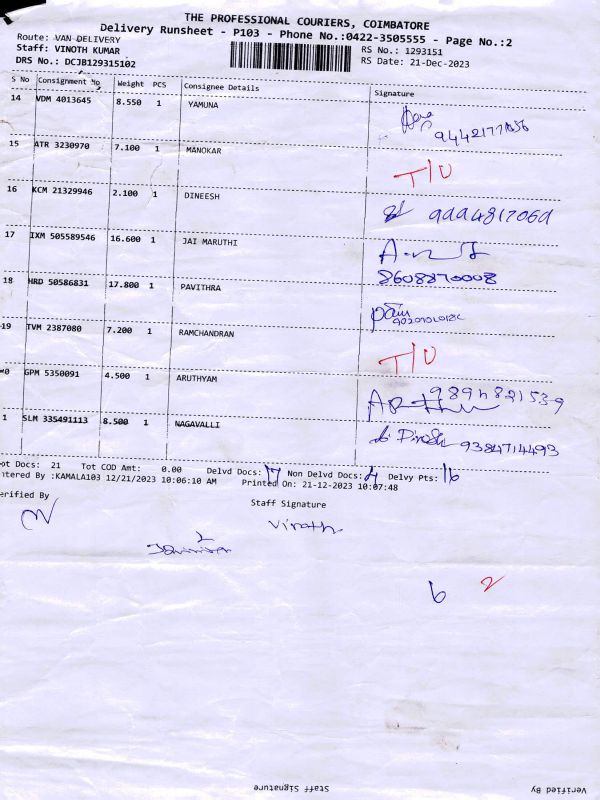 THE PROFESSIONAL COURIERS, COIMBATORE
Delivery Runsheet - P103 - Phone No.:0422-3505555 - Page No.:2
Route: VAN DELIVERY
Staff: VINOTH KUMAR RS No.: 1293151
DRS No.: DCJB129315102 RS Date: 21-Dec-2023
S No Consignment No Weight PCS Consignee Details Signature
14 VDM 4013645 8.550 1 YAMUNA
15 ATR 3230970 7.100 1 MANOKAR T/U
16 KCM 21329946 2.100 1 DINEESH
17 IXM 505589546 16.600 1 JAI MARUTHI
8608870008
18 HRD 50586831 17.800 1 PAVITHRA
19 TVM 2387080 7.200 1 RAMCHANDRAN T/U
0 GPM 5350091 4.500 1 ARUTHYAM
1 SLM 335491113 8.500 1 NAGAVALLI 9384714493
ot Docs: 21 Tot COD Amt: 0.00 Delvd Docs: 17 Non Delvd Docs: 4 Delvy Pts: 16
ntered By :KAMALA103 12/21/2023 10:06:10 AM Printed On: 21-12-2023 10:07:48
erified By Staff Signature
Vinoth
6 2
Staff Signature Verified By